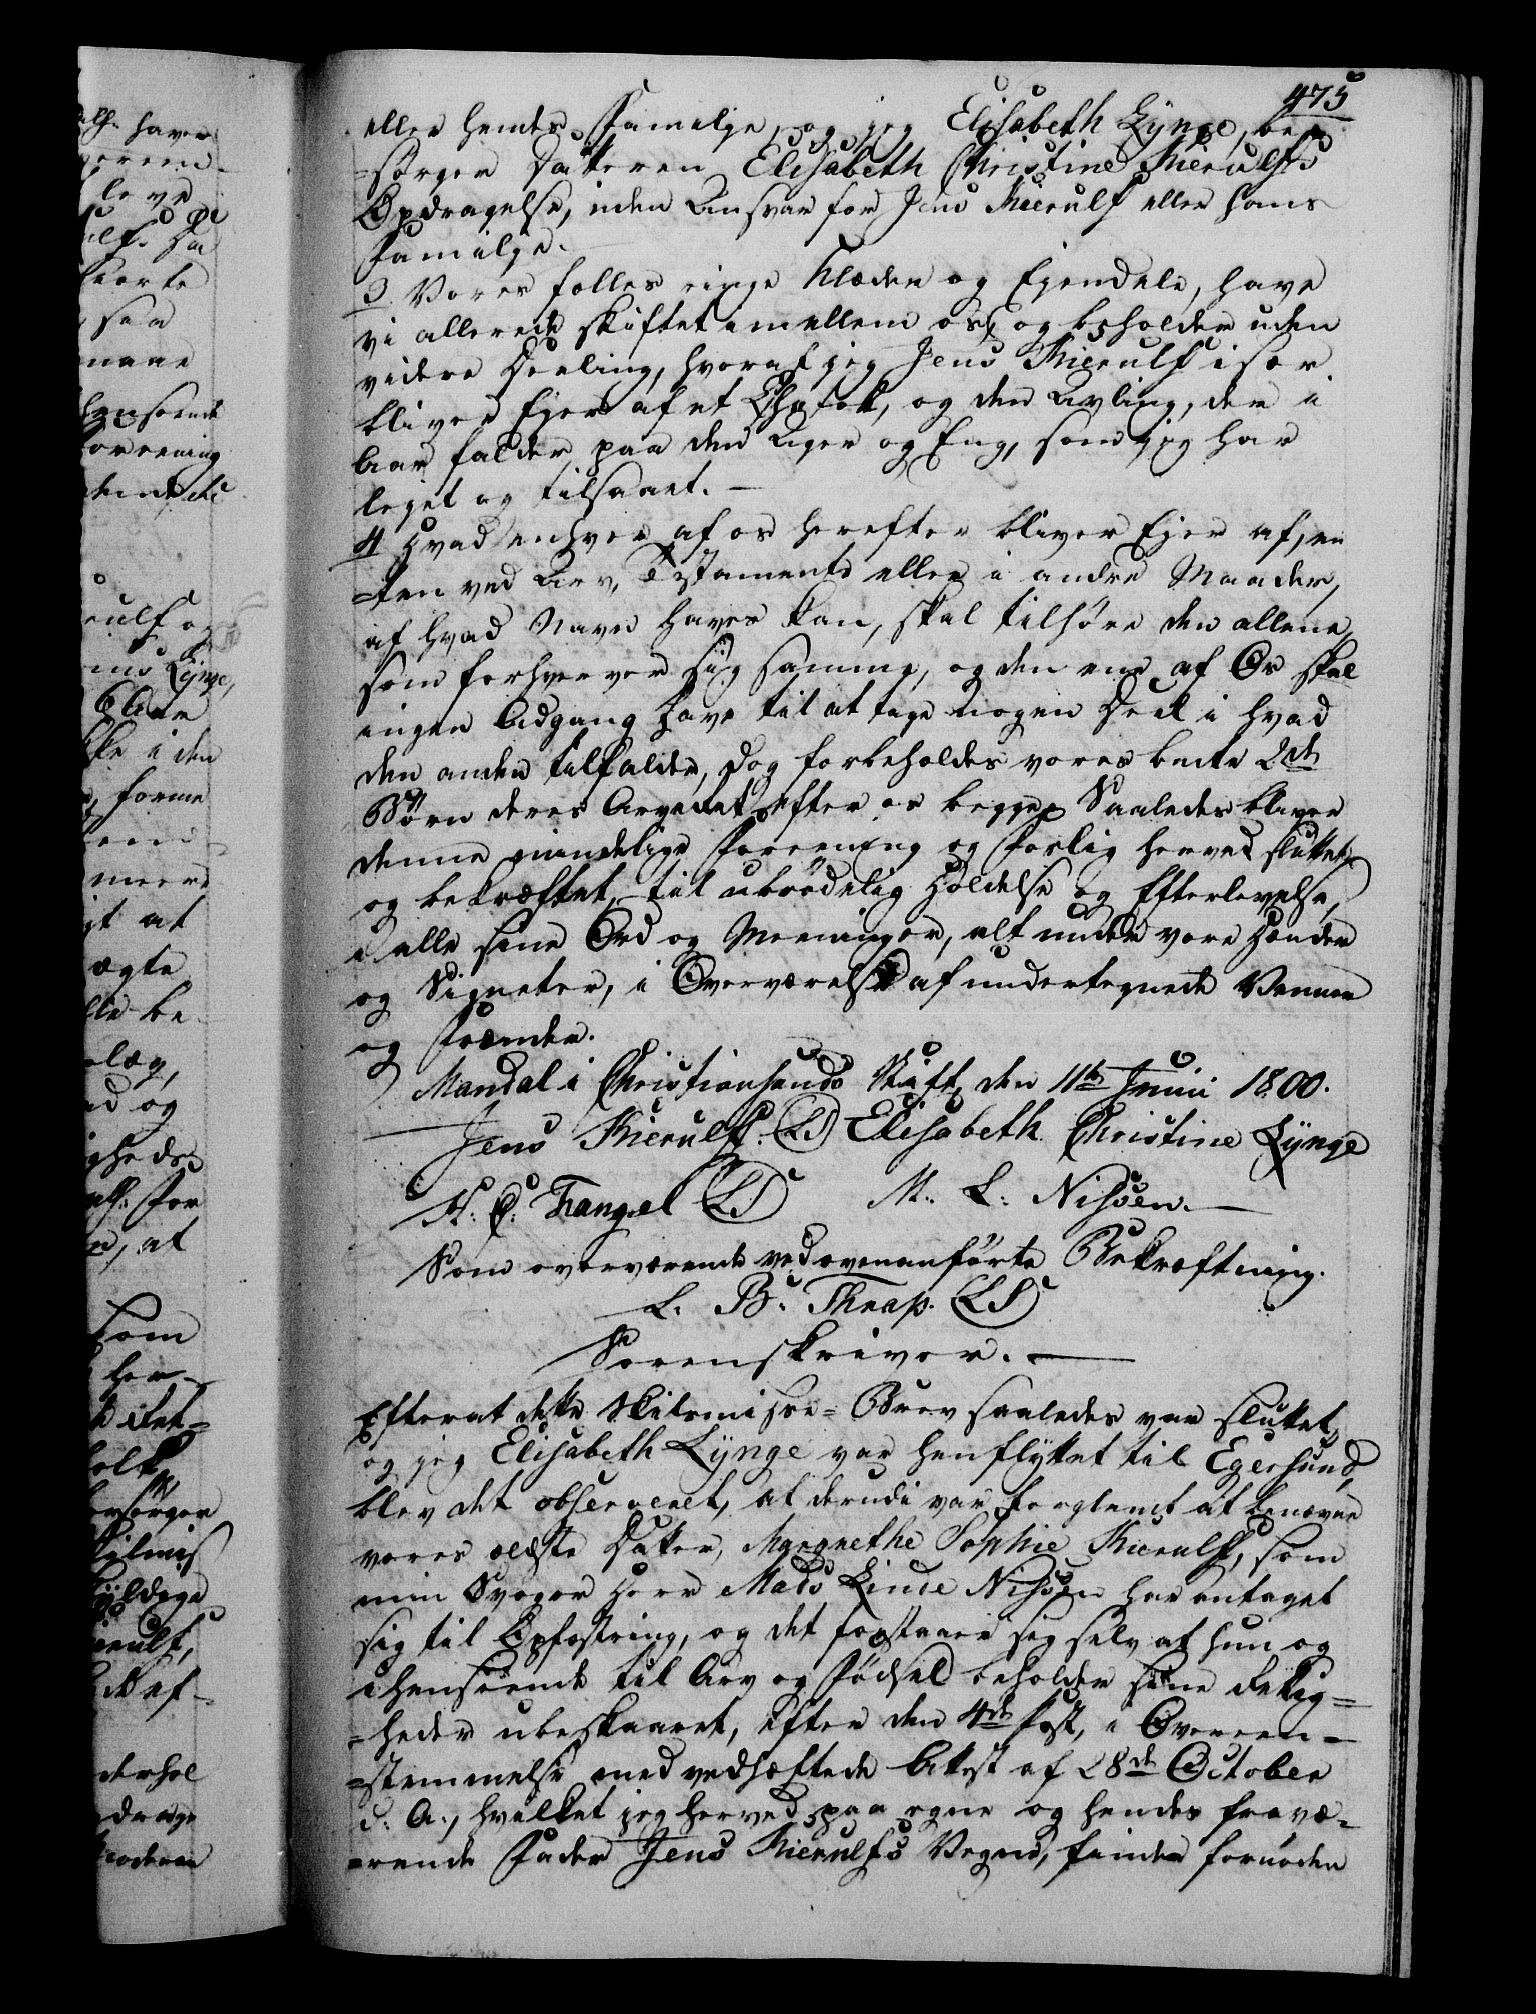 475
eller hendes Familje, og jeg Elisabeth Lynge, be-
=sörger Datteren Elisabeth Christine Kierulfs
Opdragelse, uden Ansvar for Jens Kierulf eller hans
Familje.
3. Vores fælles ringe Klæder og Ejendele, have
vi allerede skiftet imellem os, og beholder uden
videre Deeling, hvoraf jeg Jens Kierulf især
bliver Ejer af et og den Avling, der i
Aar falder paa den Ager og Eng, som jeg har
lejet og tilsaaet. —
4 Hvad enhver af os herefter bliver Ejer af, en
=ten ved Arv, Testamente eller i andre Maader,
af hvad Navn haves kan, skal tilhöre den allene,
som forhverver sig samme, og den ene af Os skal
ingen Adgang have til at tage nogen Deel i hvad
den anden tilfalder, dog forbeholdes vores bemte 2de
Börn deres Arveret efter os begge. Saaledes bliver
denne mindelige Foreening og Forlig herved sluttet
og bekræftet, til ubrödelig Holdelse og Efterlevelse,
i alle sine Ord og Meeninger, alt under vore Hænder
og Signeter, i Overværelse af undertegnede Venner
og Frænder.
Mandal i Christiansands Stift, den 11te Junii 1800.
Jens Kierulf. (LS) Elisabeth Christine Lynge
H. C. Fangel (LS) M. L. Nissen.
Som overværende ved ovenanförte Bekræftning.
L. B. Thrap. (LS)
Sorenskriver. —
Efterat dette Skilsmisse-Brev saaledes var sluttet,
og jeg Elisabeth Lynge var henflyttet til Egersund,
blev det observeret, at derudi var forglemt at benævne
vores ældste Datter, Magrethe Sophie Kierulf, som
min Svoger Herr Mads Linde Nissen har antaget
sig til Opfostring, og det forstaaer sig selv at hun og
i henseende til Arv og Födsel beholder sine Rettig=
=heder ubeskaaret, efter den 4de Post, i Overeen-
=stemmelse med vedhæftede Attest af 28de October
d. A., hvilket jeg herved paa egne og hendes fravæ-
=rende Fader Jens Kierulfs Vegne, finder fornöden